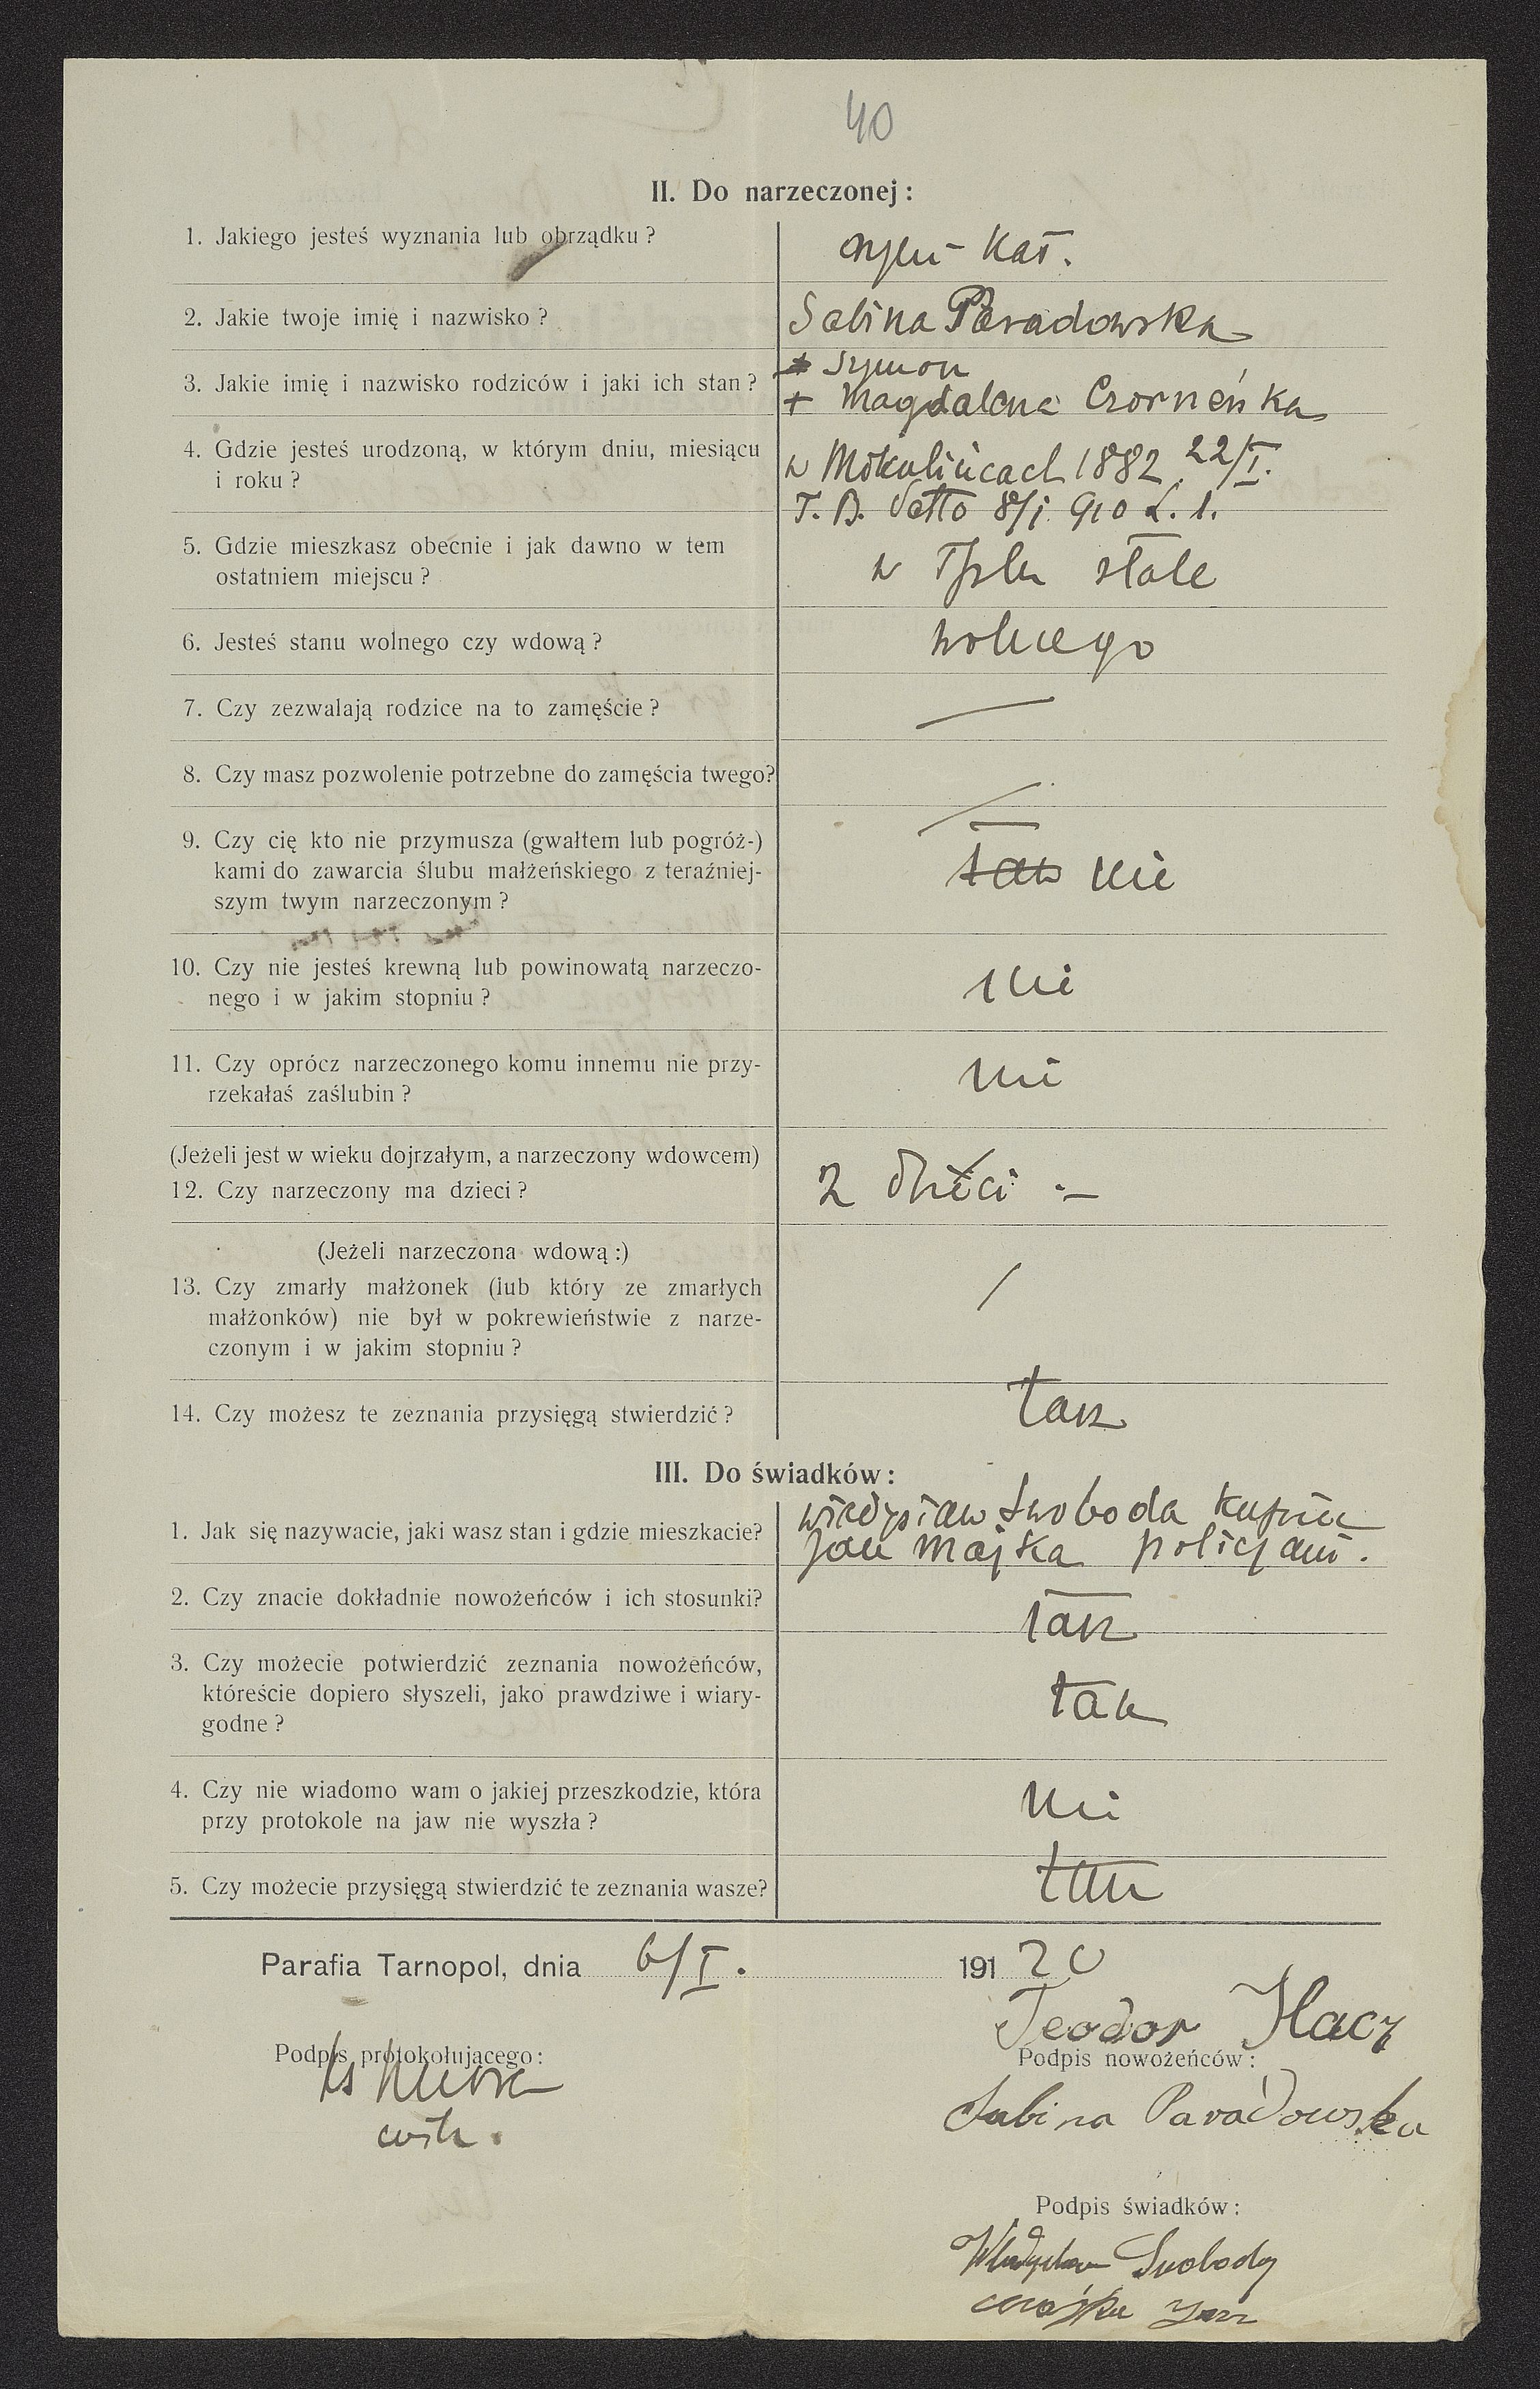 40
II. Do narzeczonej:
1. Jakiego jesteś wyznania lub obrządku?
rzym kat.
2. Jakie twoje imię i nazwisko?
Sabina Paradowska
3. Jakie imię i nazwisko rodziców i jaki ich stan?
+ Szymon
+ Magdalena Czorneńka
4. Gdzie jesteś urodzoną, w którym dniu, miesiącu
i roku?
w Mikulińcach 1882 22/I.
T. B. 8/I 910 L. 1.
5. Gdzie mieszkasz obecnie i jak dawno w tem
ostatniem miejscu?
w Tplu stale
6. Jesteś stanu wolnego czy wdową?
wolnego
7. Czy zezwalają rodzice na to zamęście?
—
8. Czy masz pozwolenie potrzebne do zamęścia twego?
—
9. Czy cię kto nie przymusza (gwałtem lub pogróż-)
kami do zawarcia ślubu małżeńskiego z teraźniej-
szym twym narzeczonym?
tak nie
10. Czy nie jesteś krewną lub powinowatą narzeczo-
nego i w jakim stopniu?
nie
11. Czy oprócz narzeczonego komu innemu nie przy-
rzekałaś zaślubin?
nie
(Jeżeli jest w wieku dojrzałym, a narzeczony wdowcem)
12. Czy narzeczony ma dzieci?
2 dzieci —
(Jeżeli narzeczona wdową:)
13. Czy zmarły małżonek (lub który ze zmarłych
małżonków) nie był w pokrewieństwie z narze-
czonym i w jakim stopniu?
/
14. Czy możesz te zeznania przysięgą stwierdzić?
tak
III. Do świadków:
1. Jak się nazywacie, jaki wasz stan i gdzie mieszkacie?
Władysław Swoboda kupiec
Jan Majka policjant.
2. Czy znacie dokładnie nowożeńców i ich stosunki?
tak
3. Czy możecie potwierdzić zeznania nowożeńców,
któreście dopiero słyszeli, jako prawdziwe i wiary-
godne?
tak
4. Czy nie wiadomo wam o jakiej przeszkodzie, która
przy protokole na jaw nie wyszła?
nie
5. Czy możecie przysięgą stwierdzić te zeznania wasze?
tak
Parafia Tarnopol, dnia 6/I. 191 20
Teodor Tkacz
Podpis protokołującego:
Podpis nowożeńców:
Ks
Sabina Paradowska
Podpis świadków:
Władysław Swoboda
Majka Jan